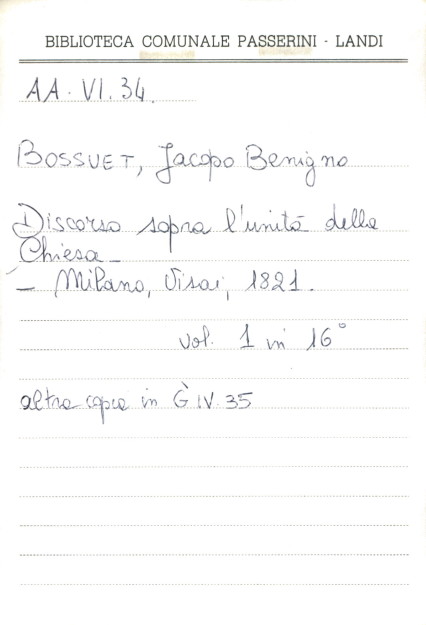 BIBLIOTECA COMUNALE PASSERINI - LANDI
AA. VI. 34.
BOSSUET, Jacopo Benigno
Discorso sopra l'unità della
Chiesa_
_ Milano, Visai, 1821.
vol. 1 in 16°
altra copia in G IV. 35